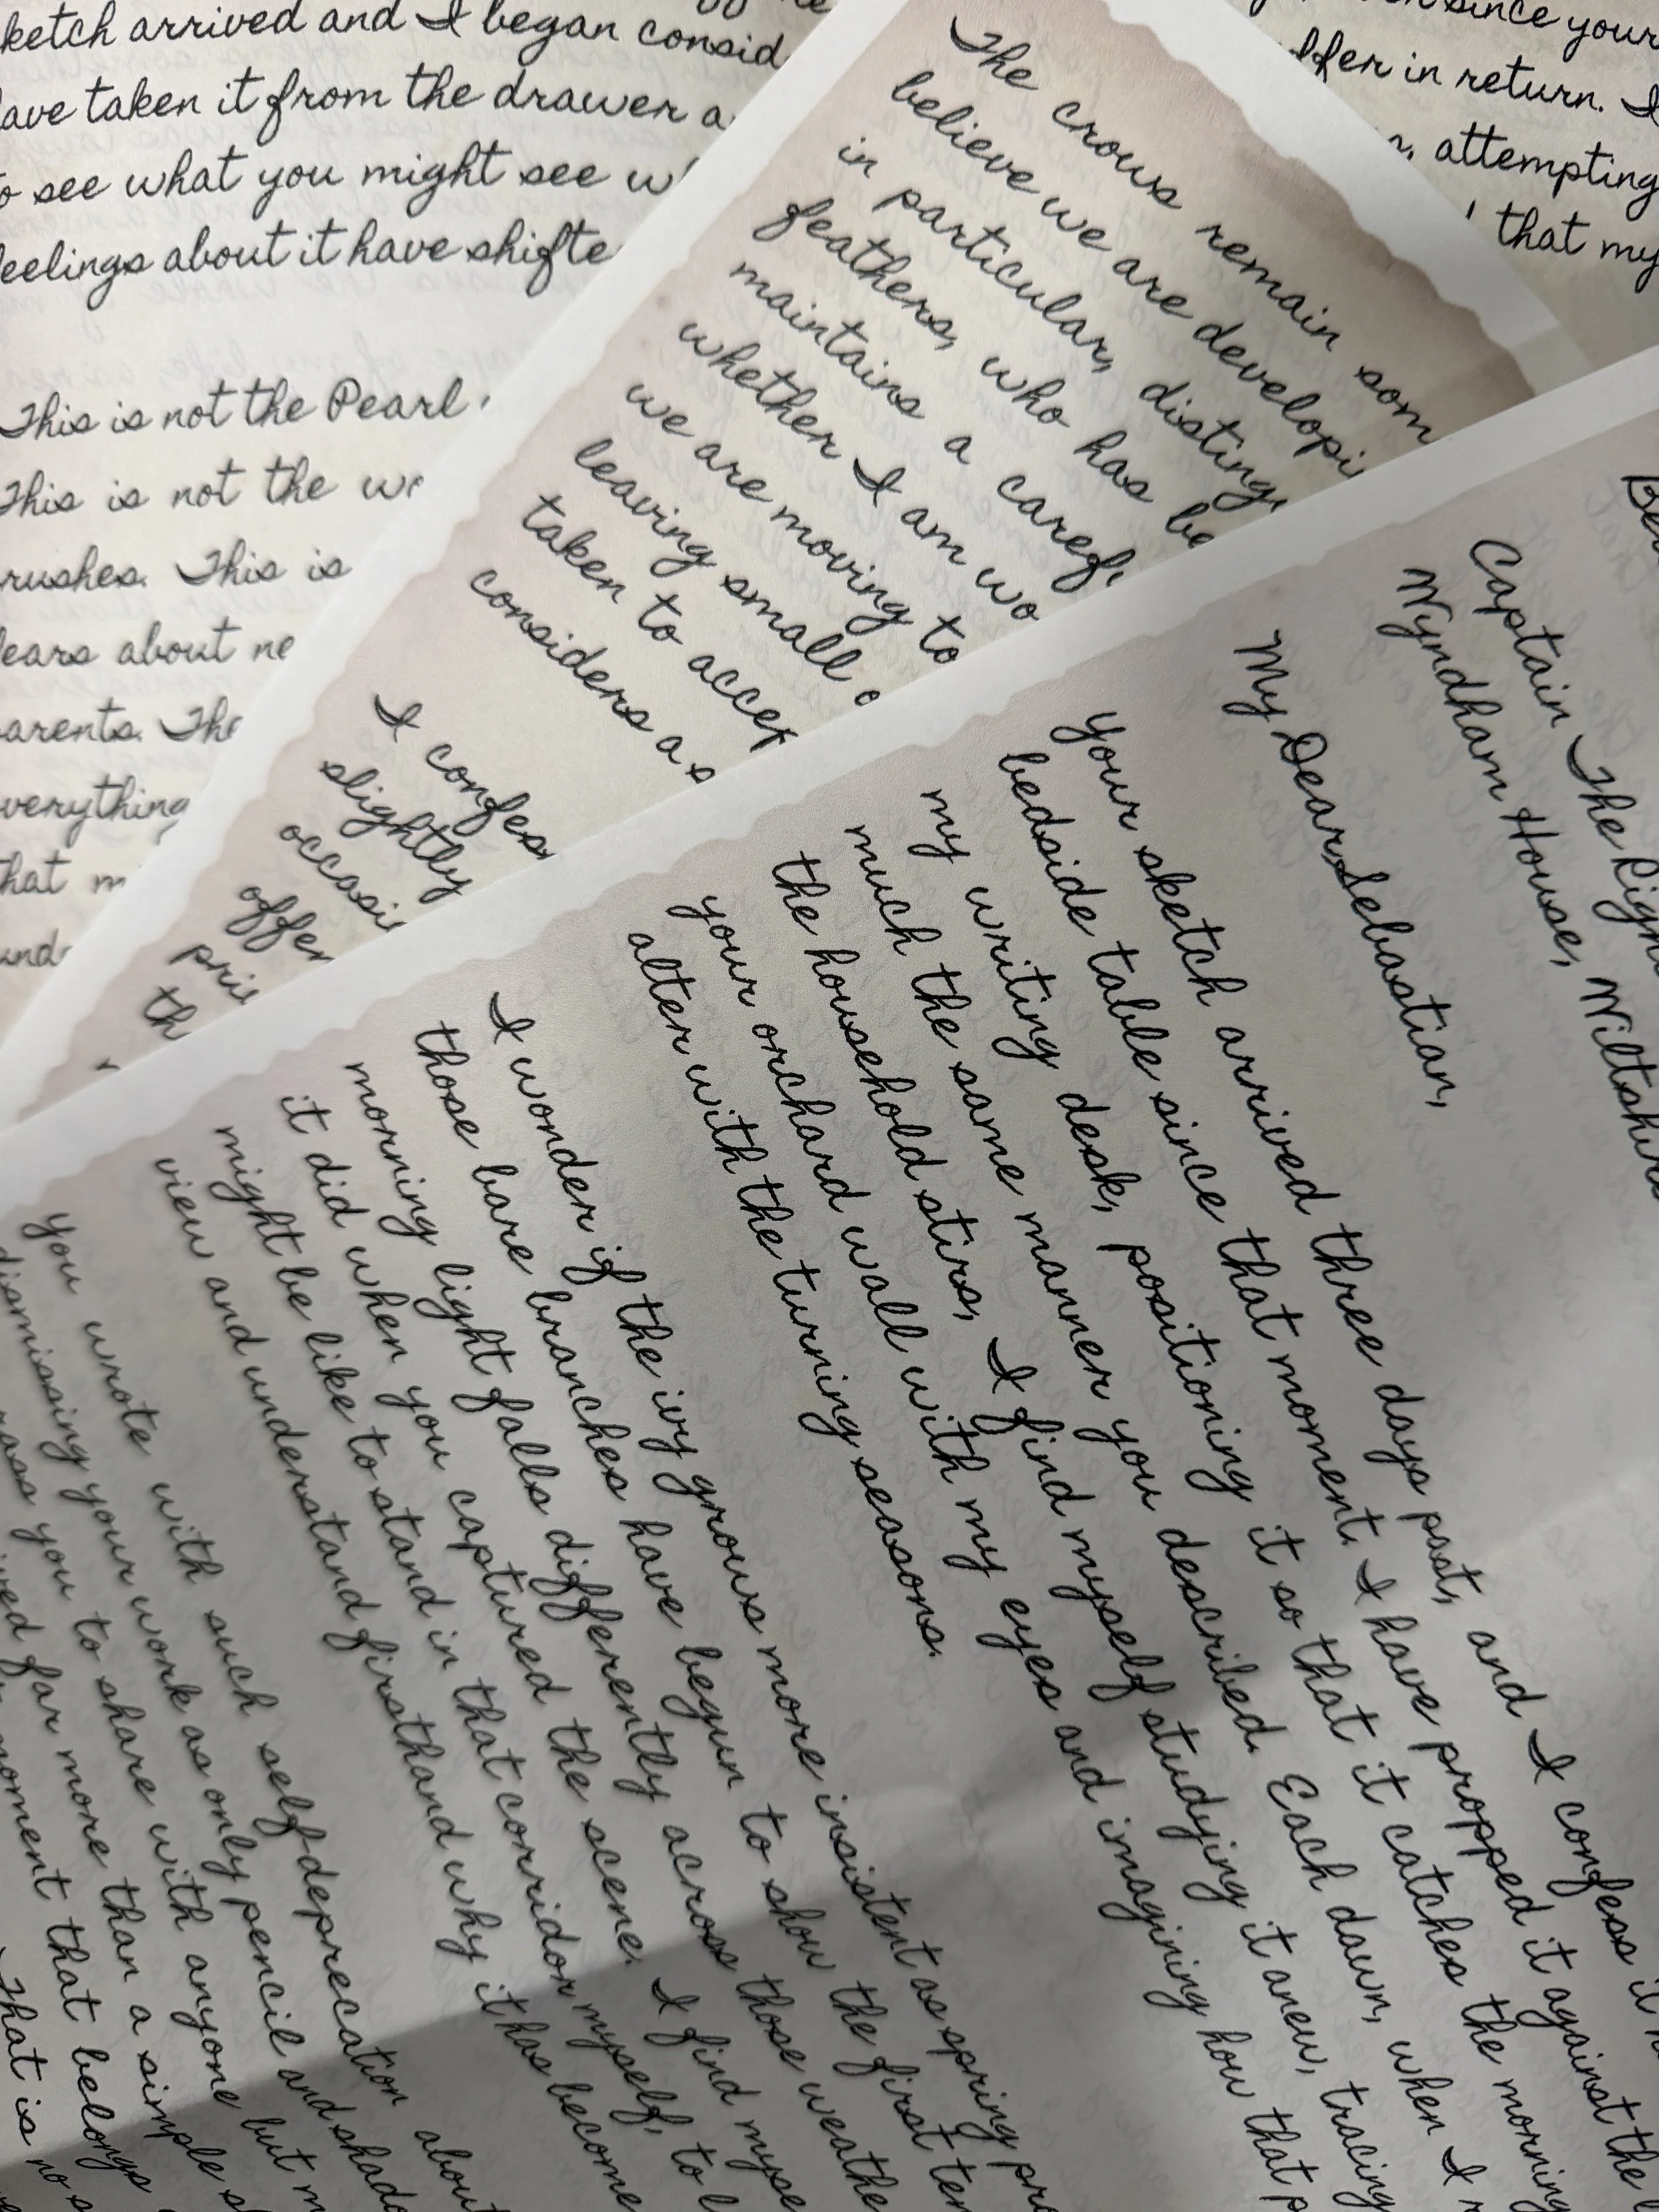 ketch arrived and I began consid
ave taken it from the drawer a
o see what you might see w
eelings about it have shifte
This is not the Pearl
This is not the
rushes. This is
ears about ne
arents. The
verything
hat m
und
since your
ffer in return. I
attempting
that my
The crows remain som
believe we are developi
in particular, disting
feathers, who has be
maintains a caref
whether I am wo
we are moving to
leaving small o
taken to accep
considers a s
I confess
slightly
occasi
offer
pri
th
Captain The Righ
Wyndham House, Wiltshire
My Dear Sebastian,
Your sketch arrived three days past, and I confess it
bedside table since that moment. I have propped it against the
my writing desk, positioning it so that it catches the morning
much the same manner you described. Each dawn, when I
the household stirs, I find myself studying it anew, tracing
your orchard wall with my eyes and imagining how that p
alter with the turning seasons.
I wonder if the ivy grows more insistent as spring pro
those bare branches have begun to show the first ten
morning light falls differently across those weathe
it did when you captured the scene. I find myse
might be like to stand in that corridor myself, to l
view and understand firsthand why it has become
You wrote with such self-deprecation about
dismissing your work as only pencil and shado
you to share with anyone but m
far more than a simple s
moment that belongs
That is no s